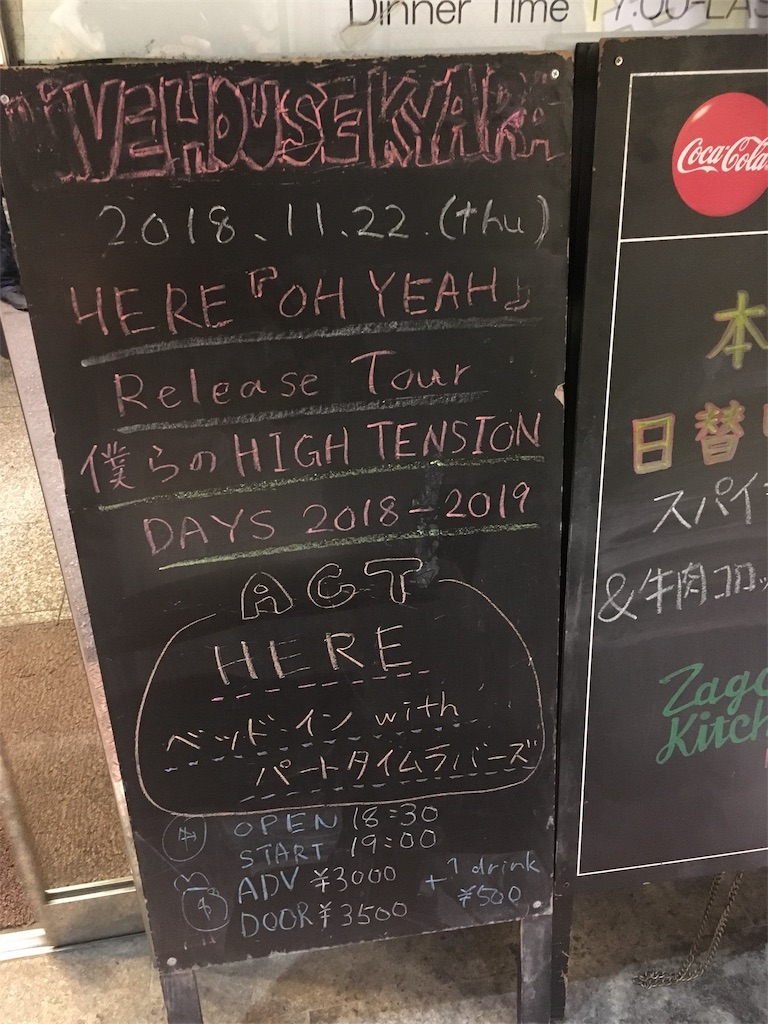 Dinner Time 17:00-LAS
LIVEHOUSE KYARA
2018.11.22.(thu)
HERE『OH YEAH』
Release Tour
僕らのHIGH TENSION
DAYS 2018-2019
ACT
HERE
ベッド・イン with
パートタイムラバーズ
OPEN 18:30
START 19:00
ADV ¥3000
+1 drink
¥500
DOOR ¥3500
Coca-Cola
本
日替
スパイ
&牛肉コロッ
Zago
Kitch